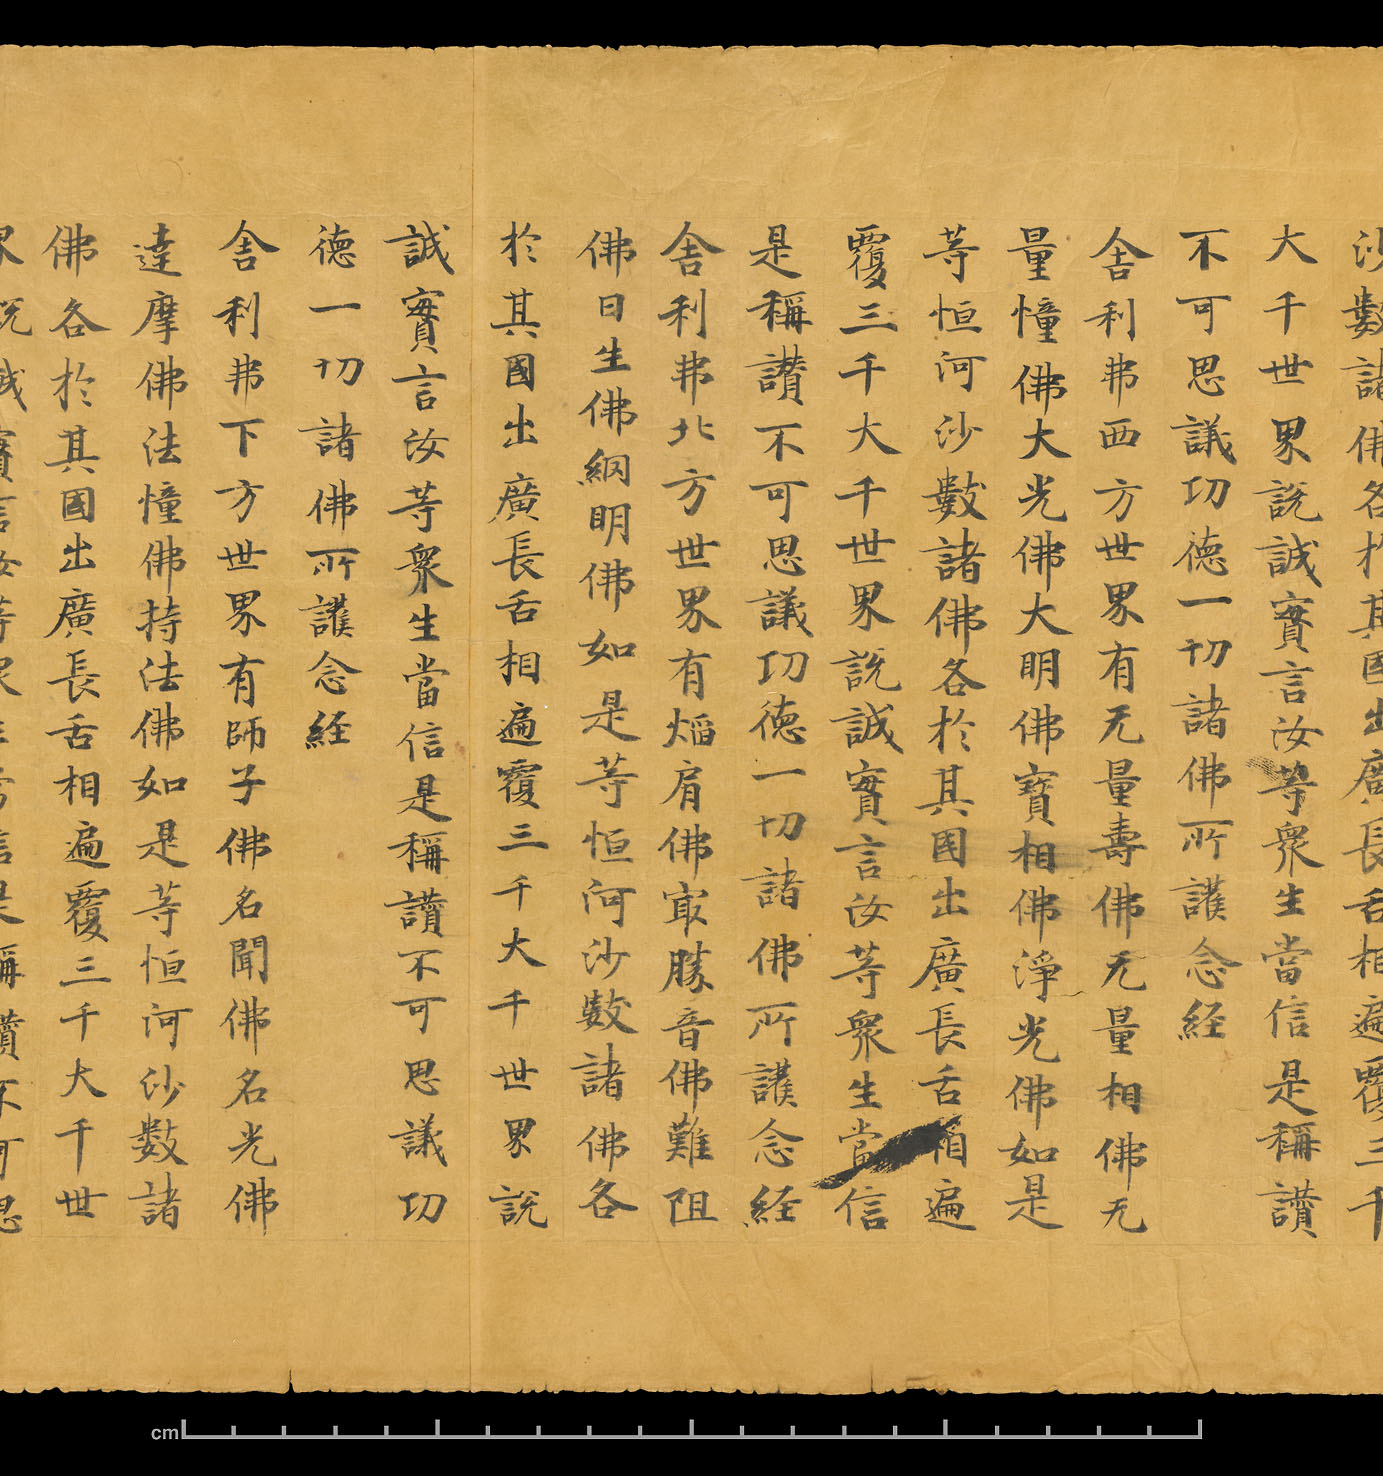 沙數諸佛各於其國出廣長舌相遍覆三千
大千世界說誠實言汝等衆生當信是稱讃
不可思議功德一切諸佛所護念経
舍利弗西方世界有无量壽佛无量相佛无
量憧佛大光佛大明佛寶相佛淨光佛如是
等恒河沙數諸佛各於其國出廣長舌相遍
覆三千大千世界說誠實言汝等衆生當信
是稱讃不可思議功德一切諸佛所護念経
舍利弗北方世界有焰肩佛㝡勝音佛難阻
佛日生佛網明佛如是等恒河沙數諸佛各
於其國出廣長舌相遍覆三千大千世界說
誠實言汝等衆生當信是稱讃不可思議功
德一切諸佛所護念経
舍利弗下方世界有師子佛名聞佛名光佛
達摩佛法憧佛持法佛如是等恒河沙數諸
佛各於其國出廣長舌相遍覆三千大千世
界說誠實言汝等衆生當信是稱讃不可思